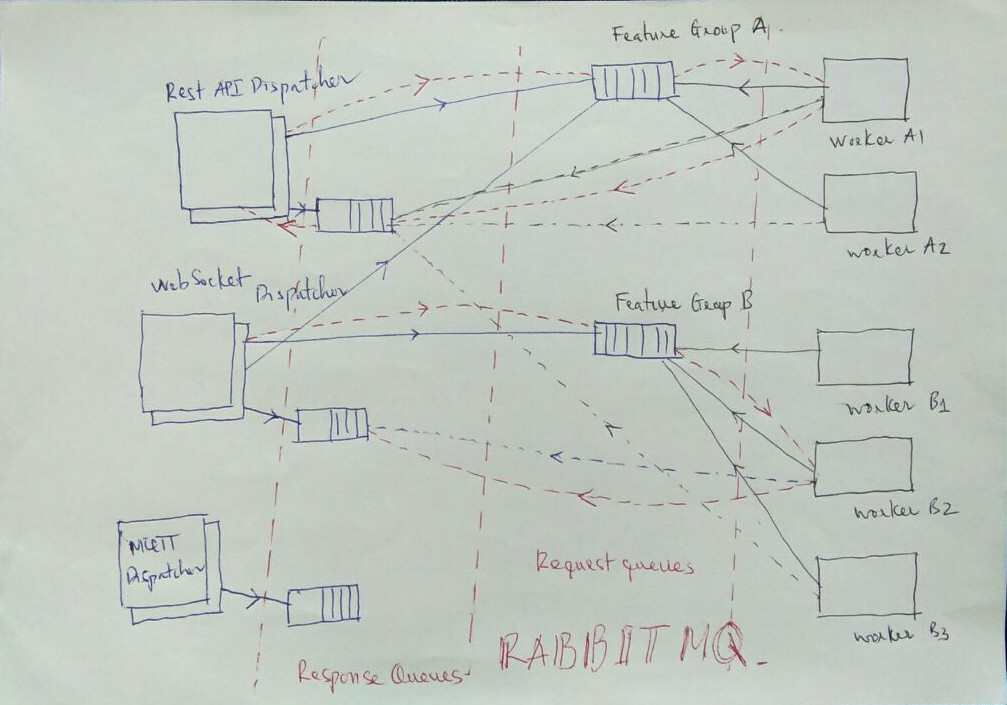 Feature Group A
Rest API Dispatcher
Worker A1
worker A2
WebSocket
Dispatcher
Feature Group B
worker B1
worker B2
MQTT
Dispatcher
Request queues
worker B3
RABBIT MQ
Response Queues